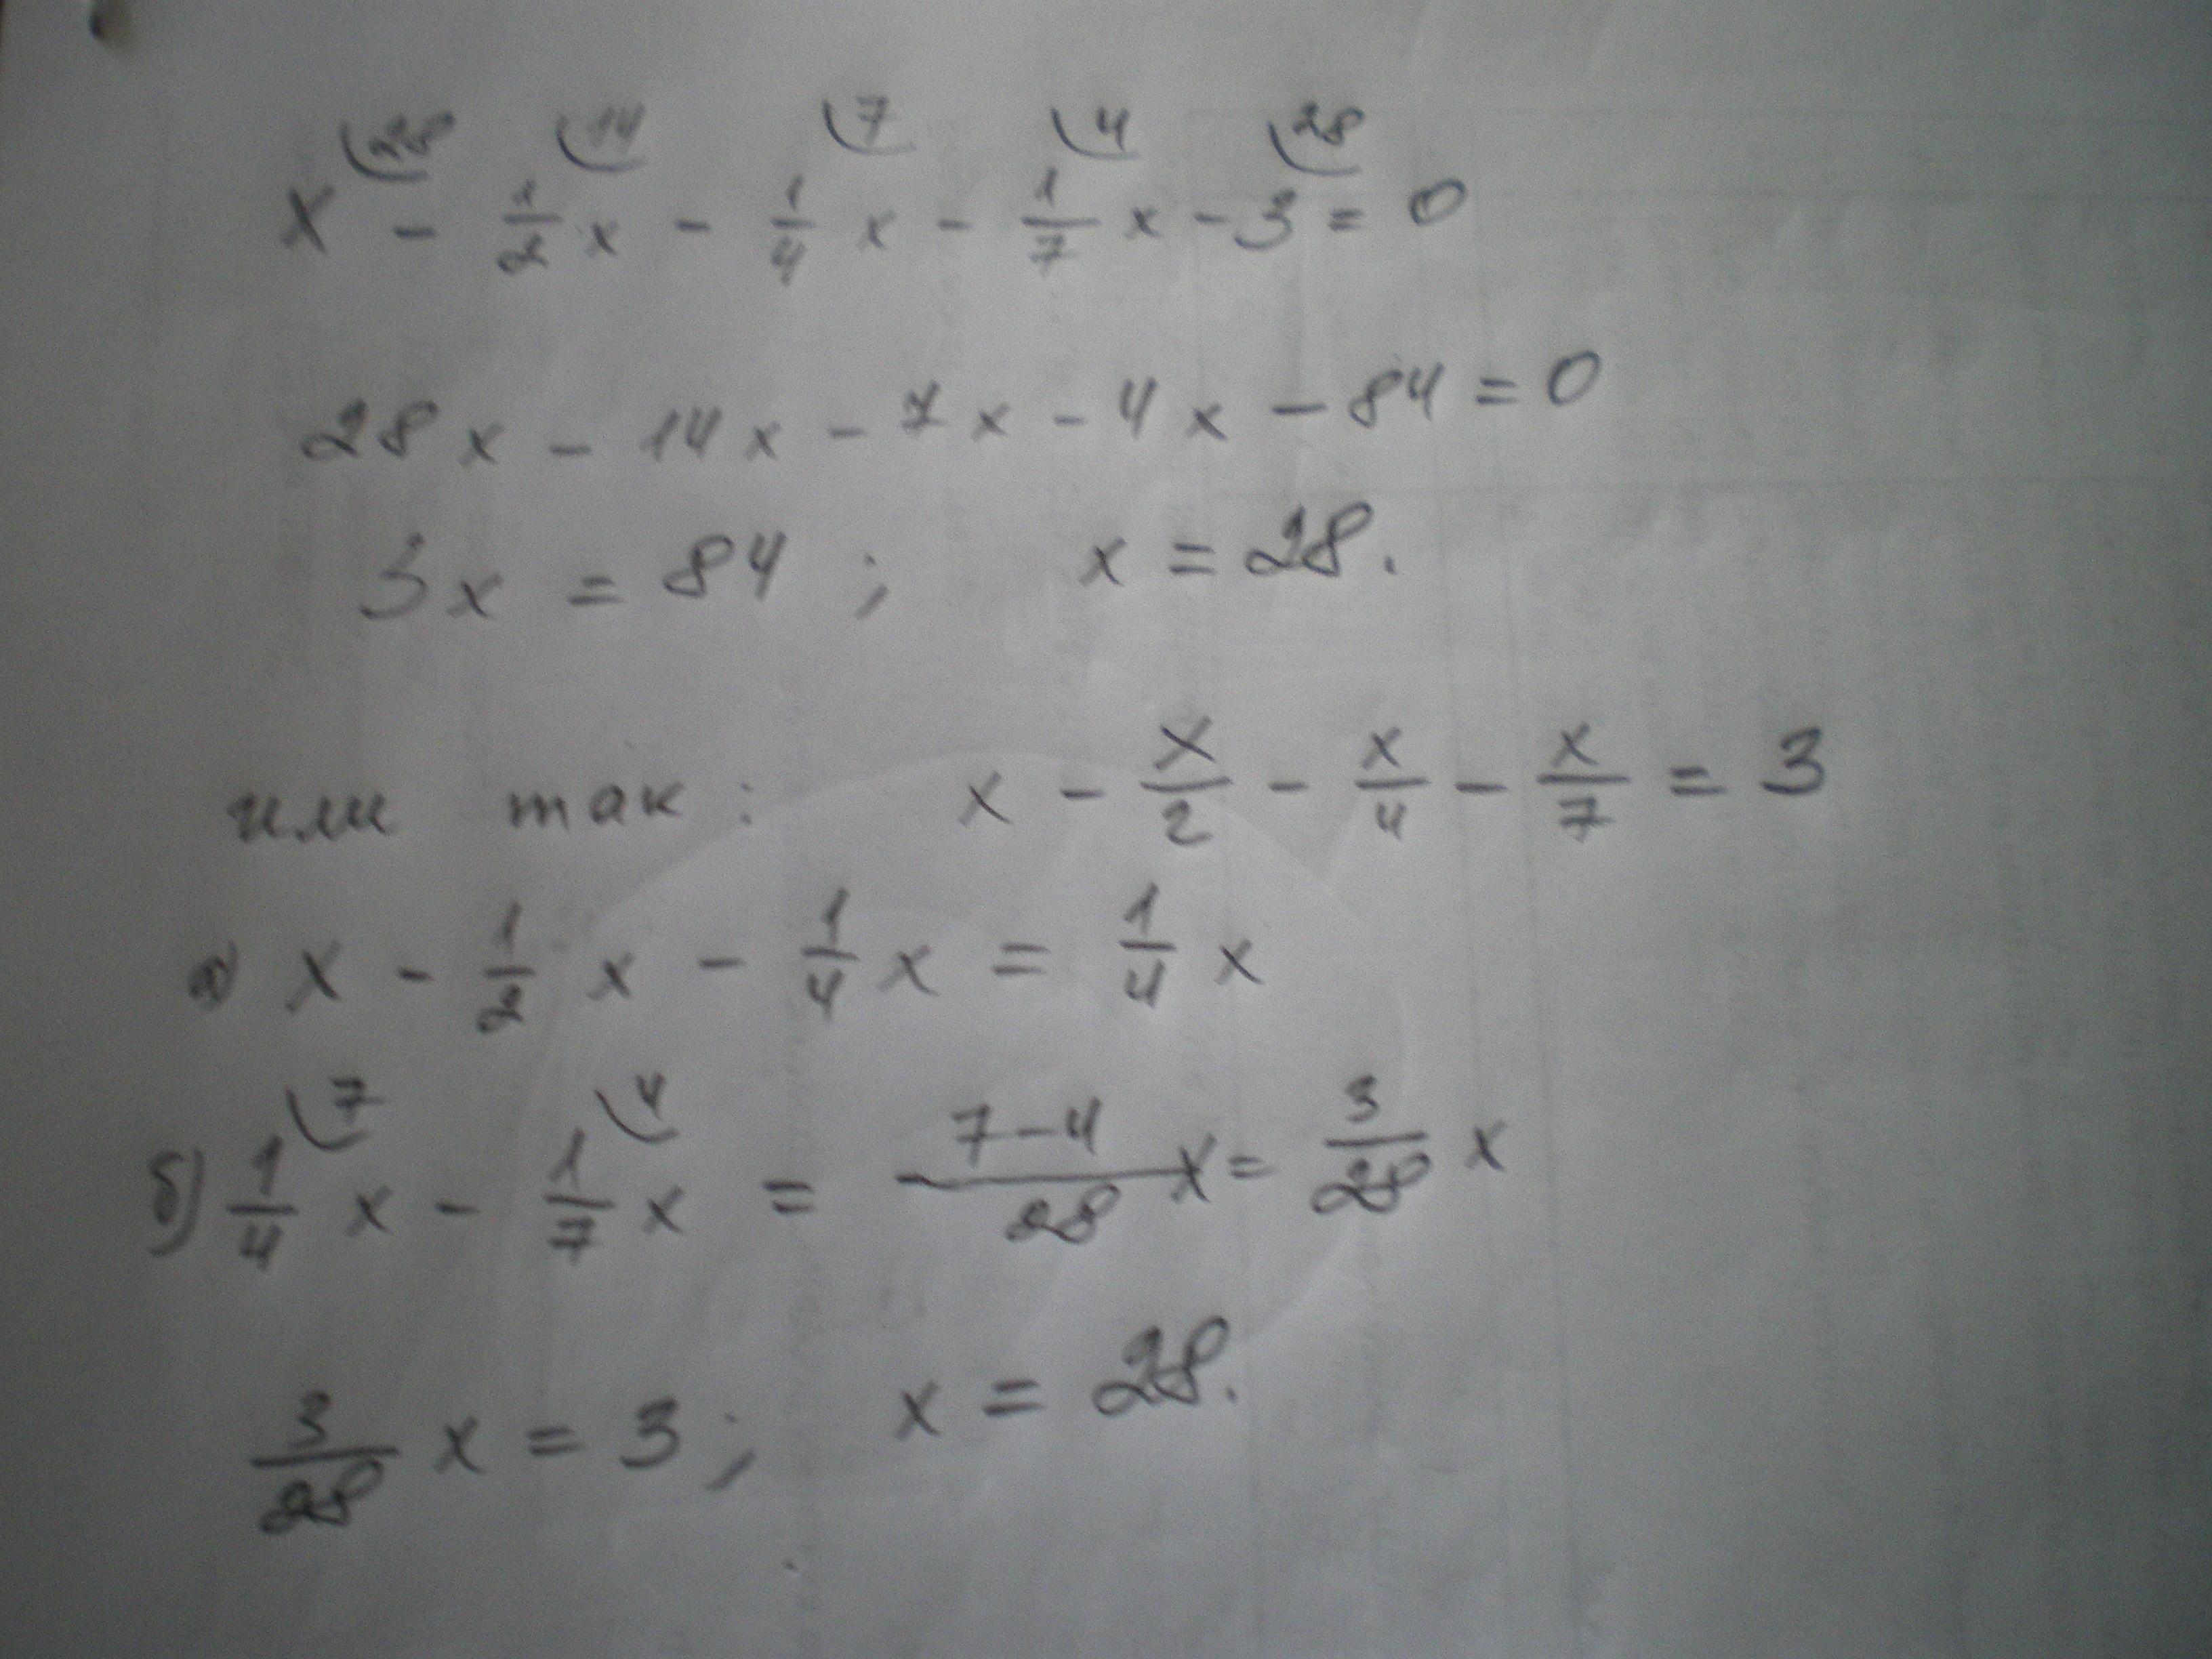 28 14 7 4 28
x - 1/2 x - 1/4 x - 1/7 x - 3 = 0
28x - 14x - 7x - 4x - 84 = 0
3x = 84 ; x = 28.
или так: x - x/2 - x/4 - x/7 = 3
а) x - 1/2 x - 1/4 x = 1/4 x
7 4
б) 1/4 x - 1/7 x = 7-4/28 x = 3/28 x
3/28 x = 3 ; x = 28.